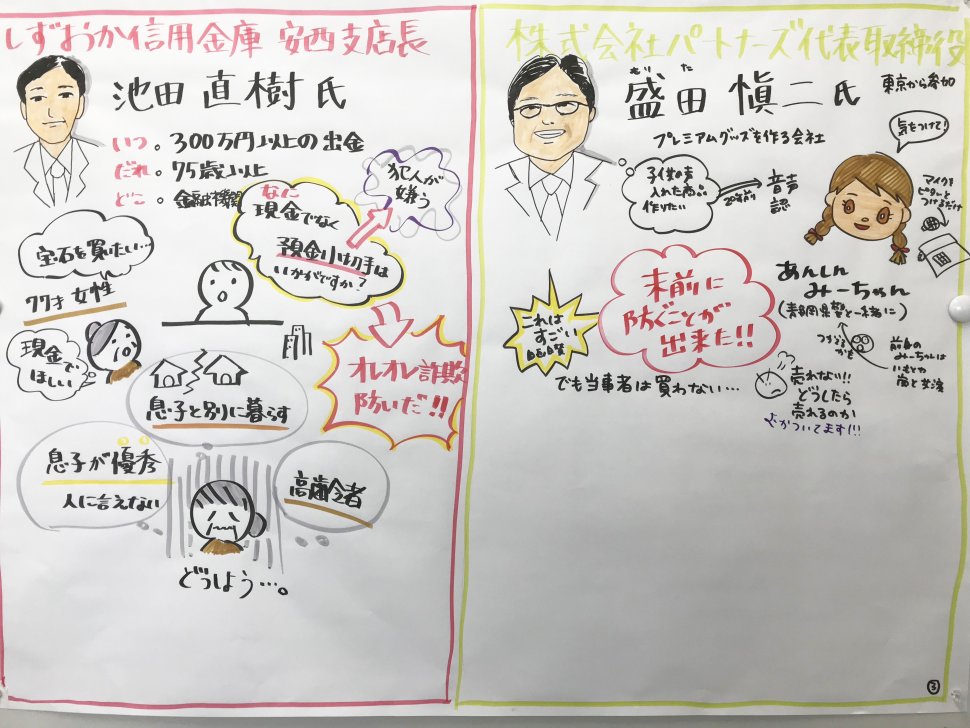 しずおか信用金庫 安西支店長
池田 直樹 氏
いつ。300万円以上の出金
だれ。75歳以上
どこ。金融機関
なに
現金でなく
預金小切手は
いかがですか?
犯人が
嫌う
宝石を買いたい…
77才 女性
現金で
ほしい
オレオレ詐欺
防いだ!!
息子と別に暮らす
息子が優秀
人に言えない
高齢者
どうしよう…。
株式会社パートナーズ代表取締役
もり た
盛田 愼二 氏
東京から参加
プレミアムグッズを作る会社
気をつけて!
子供の声
入れた商品
作りたい
20年前
音声
認
マイクを
つけるだけ
あんしん
みーちゃん
(静岡県警と一緒に)
未前に
防ぐことが
出来た!!
これは
すごい
でも当事者は買わない…
売れない!!
どうしたら
売れるのか
ムカついてます!!!
みーちゃんは
3